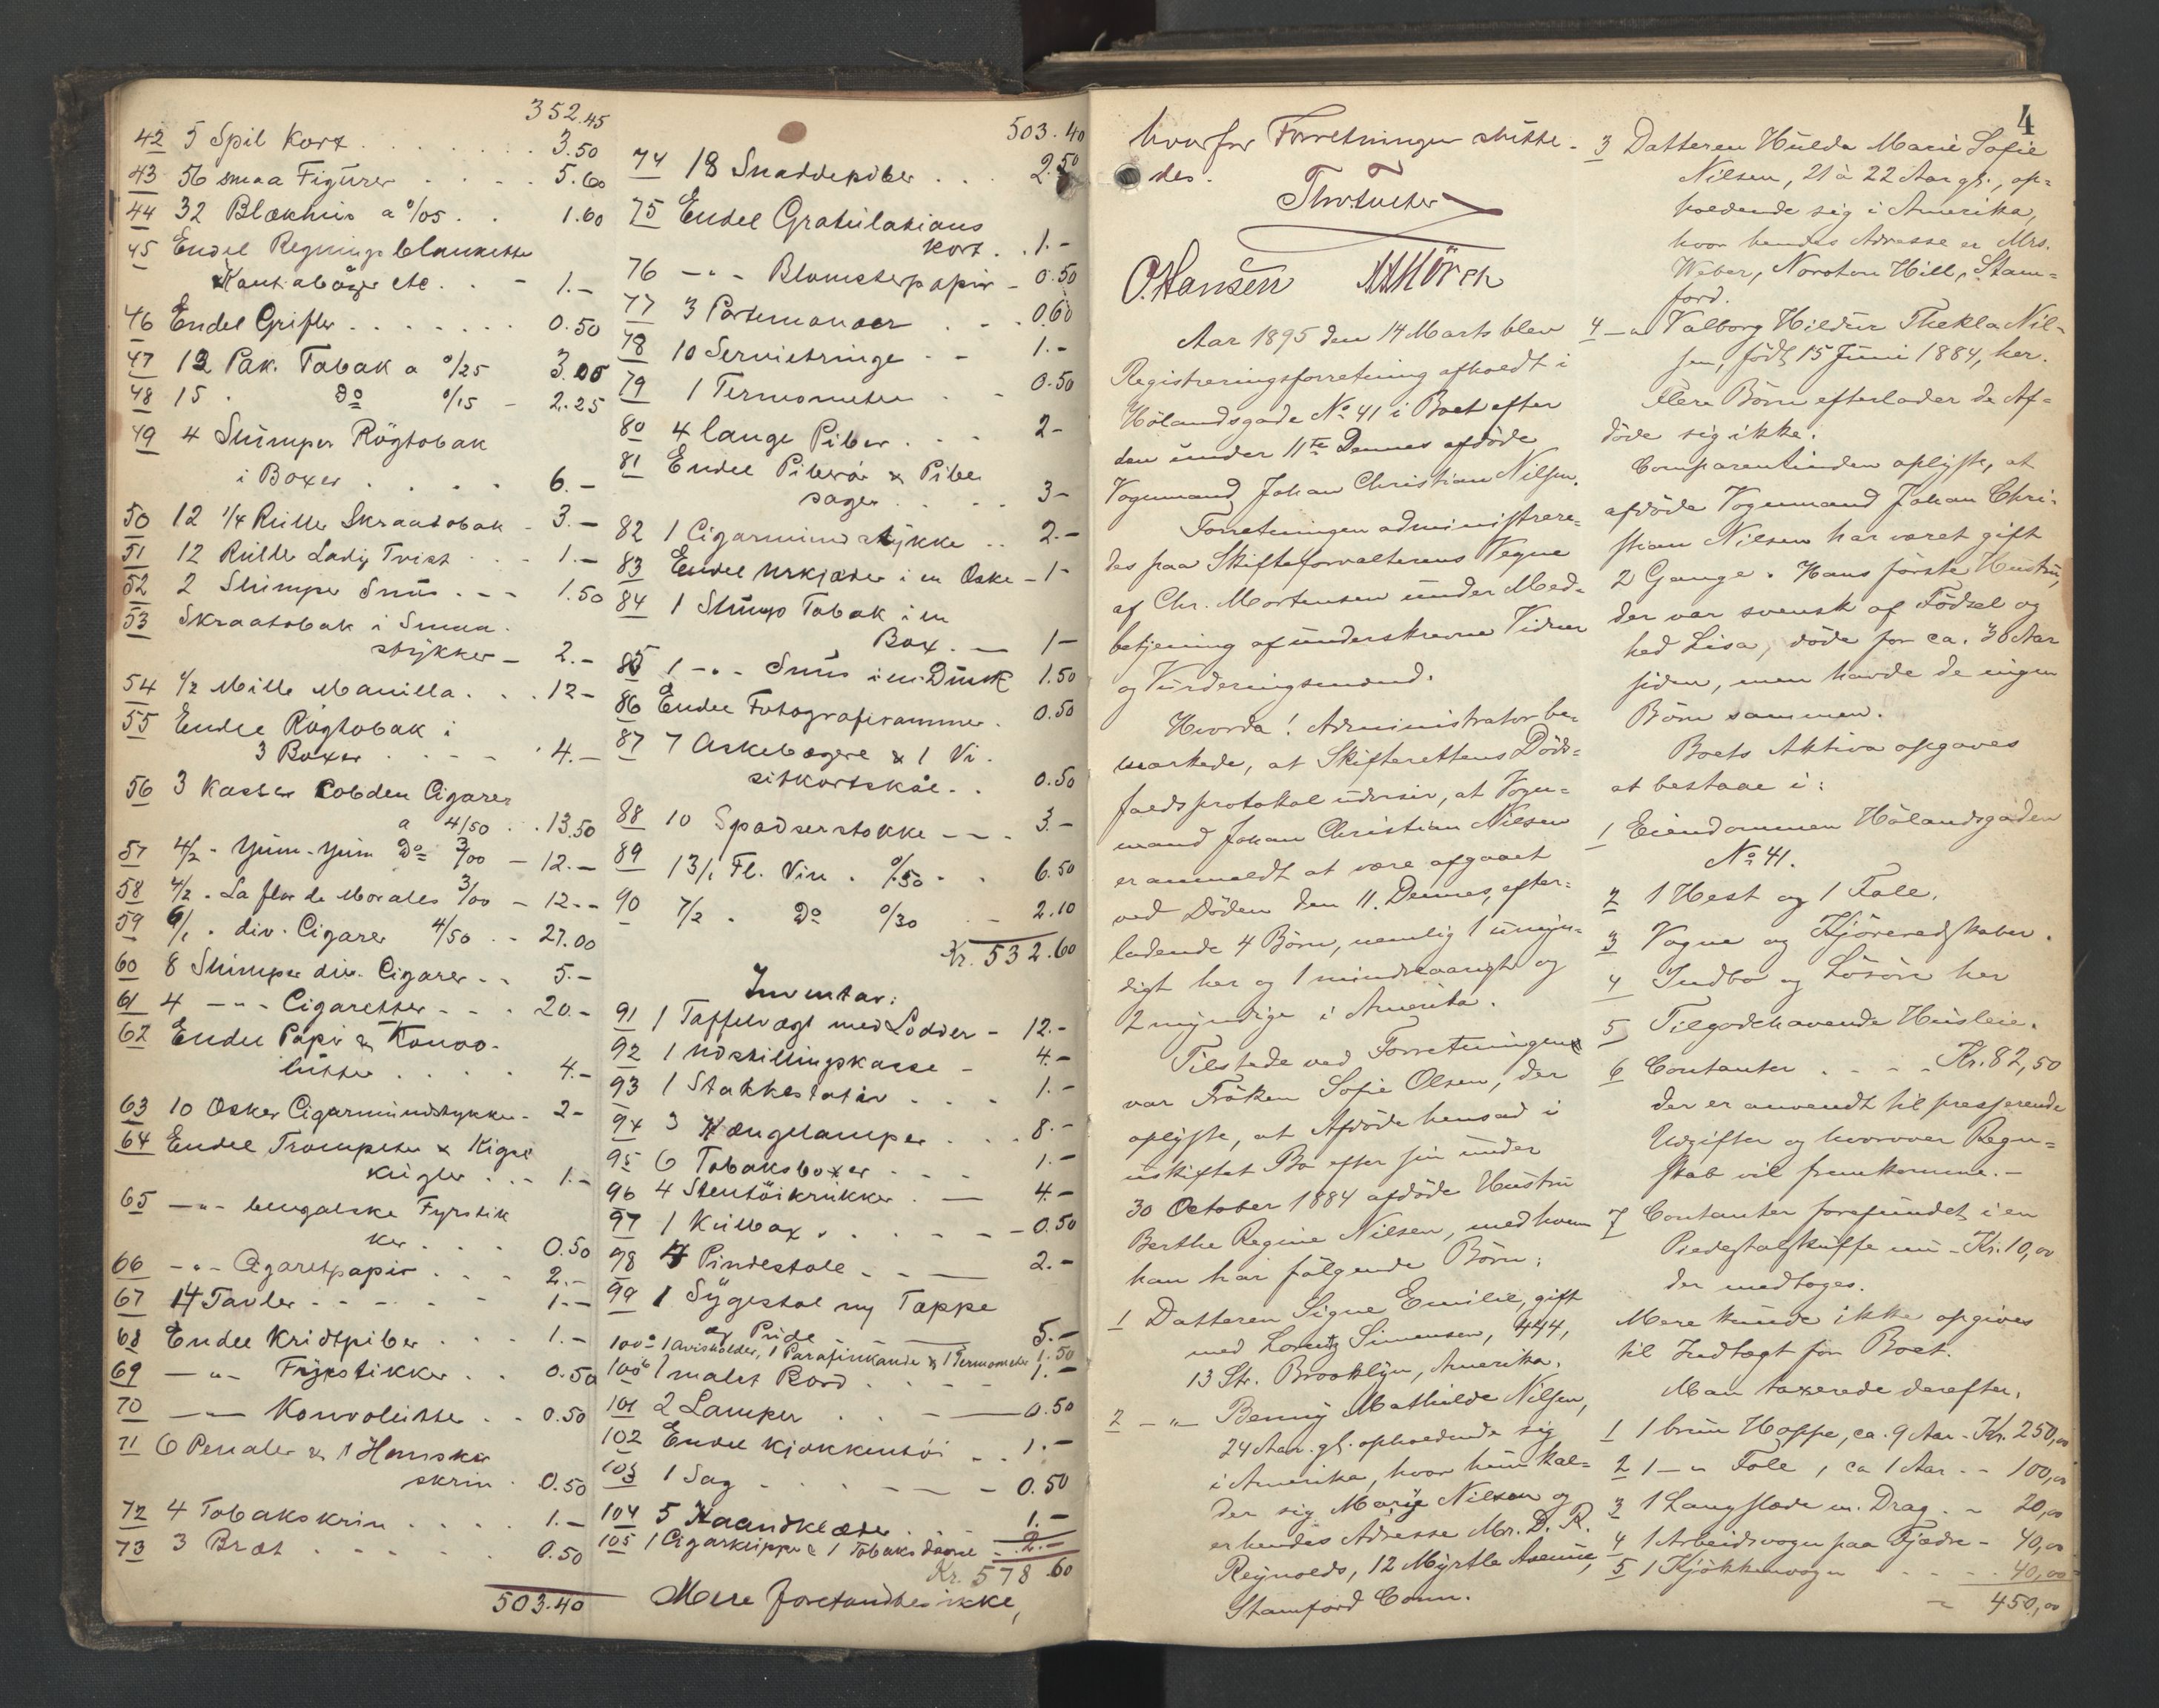 352.45
42 5 Spil Kort . . . . . . . 3.50
43 56 smaa Figurer . . . . 5.60
44 32 Blækhus a 0/05 . . 1.60
45 Endel Regningsblanketter
Kontrabøger etc. . - 1.-
46 Endel Grifler . . . . . . . 0.50
47 12 Pak. Tobak a 0/25 3.00
48 15 . Do 0/15 - 2.25
49 4 Slumper Rögtobak
i Boxer . . . . . 6.-
50 12 1/4 Ruller Skraatobak - 3.-
51 12 Ruller Lady Tvist . . - 1.-
52 2 Slumper Snus . - - 1.50
53 Skraatobak i Smaa-
stykker - 2.-
54 1/2 Mille Manilla . . . 12-
55 Endel Rögtobak i
3 Boxer . . . - - . 4.-
56 3 Kasser Cobden Cigarer
a 4/50 . . 13.50
57 4/2 - Yum-Yum Do 3/00 - 12.-
58 4/2 . La flor de Morales 3/00 - 12.-
59 6/1 . div. Cigarer 4/50 . - 27.00
60 8 Slumper div. Cigarer . - 5.-
61 4 -"- Cigaretter - - . 20.-
62 Endel Papir & Konvo-
lutter . . . . . 4.-
63 10 Æsker Cigarmundstykker - 2-
64 Endel Trompeter &
Kugler . . - 1.-
65 -"- bengalske Fyrstik
ker . . . . 0.50
66 -"- Cigaretpapir . . . 2.-
67 14 Tavler - - - - - - 1.-
68 Endel Kridtpiber . . . 1.-
69 -"- Fyrstikker . . 0.50
70 -"- Konvolutter . - 0.50
71 6 Penaler & 1 Hanske
skrin . 0.50
72 4 Tobakskrin . . . . 1.-
73 3 Bræt . - - - - . 0.50
503.40
503.40
74 18 Snaddepiber . . . 2.50
75 Endel Gratulations
kort . . 1.-
76 -"- Blomsterpapir - 0.50
77 3 Portemonaer . - . 0.60
78 10 Servietringe . - 1.-
79 1 Termometer . - 0.50
80 4 lange Piber . . - 2-
81 Endel Piberör & Pibe
sager . . - . 3-
82 1 Cigarmundstykke . . 2.-
83 Endel Urkjæder i en Æske - 1-
84 1 Slump Tobak i en
Box . - 1-
85 1 -"- Snus i en Dunk 1.50
86 Endel Fotografirammer . 0.50
87 7 Askebægere & 1 Vi-
sitkortskål . . 0.50
88 10 Spadserstokke - - . 3.-
89 13/1 Fl. Vin . 0/50 . . 6.50
90 7/2 . Do 0/30 - 2.10
Kr. 532.60
Inventar:
91 1 Taffelvægt med Lodder - 12.-
92 1 Udstillingskasse - 4.-
93 1 Stokkestativ . . . 1.-
94 3 Hængelamper . . . 8.-
95 6 Tobaksboxer . - - 1.-
96 4 Stentöikrukker . - 4.-
97 1 Kulbox . . . - - - 0.50
98 4 Pindestole - - - 2.-
99 1 Sygestol ny Tæppe
og Pude - 5.-
100a 1 Avisholder, 1 Parafinkande & 1 Termometer 1.50
100b 1 malet Bord . . . - - 1.-
101 2 Lamper . . - - 0.50
102 Endel Kjøkkentöi . . 1.-
103 1 Sag - - . - - - 0.50
104 5 Haandklæder . . - 1.-
105 1 Cigarklipper & 1 Tobaksdaase - 2.-
Kr. 578.60
Mere forefandtes ikke,
hvorfor Forretningen slutte-
des.
C. Hansen
Aar 1895 den 14 Marts blev
Registreringsforretning afholdt i
Hölandsgade No 41 i Boet efter
den under 11te Dennes afdöde
Vognmand Johan Christian Nilsen.
Forretningen administrere-
des paa Skifteforvalterens Vegne
af Chr. Mortensen under Med-
betjening af underskrevne Vidner
og Vurderingsmænd.
Hvorda! Administrator be-
mærkede, at Skifterettens Döds-
faldsprotokol udviser, at Vogn-
mand Johan Christian Nilsen
er anmeldt at være afgaaet
ved Döden den 11. Dennes, efter-
ladende 4 Börn, nemlig 1 umyn-
digt her og 1 mindreaarigt og
2 myndige i Amerika.
Tilstede ved Forretningen
var Fröken Sofie Olsen, der
oplyste, at Afdöde hensad i
uskiftet Bo efter sin under
30 October 1884 afdöde Hustru
Berthe Regine Nilsen, med hvem
han har fölgende Börn:
1 Datteren Signe Emilie, gift
med Lorentz Simensen, 444,
13 Str. Brooklyn, Amerika.
2 -"- Benny Mathilde Nilsen,
24 Aar gl. opholdende sig
i Amerika, hvor hun kal-
der sig Marije Nilsen og
er hendes Adresse Mr. D. R.
Reynolds, 12 Myrtle Avenue,
Stamford Conn.
4
3 Datteren Hulda Marie Sofie
Nilsen, 21 à 22 Aar gl., op-
holdende sig i Amerika,
hvor hendes Adresse er Mrs.
Weber, Noroton Hill, Stam-
ford.
4 -"- Valborg Hildur Thekla Nil-
sen, födt 15 Juni 1884, her.
Flere Börn efterlader de Af-
döde sig ikke.
Comparentinden oplyste, at
afdöde Vognmand Johan Chri-
stian Nilsen har været gift
2 Gange. Hans förste Hustru,
der var svensk af Födsel og
hed Lisa, döde for ca. 30 Aar
siden, men havde de ingen
Börn sammen.
Boets Aktiva opgaves
at bestaae i:
1 Eiendommen Hölandsgaden
No 41.
2 1 Hest og 1 Fole.
3 Vogne og Kjöreredskaber.
4 Indbo og Lösöre her
5 Tilgodehavende Husleie.
6 Contanter . - - - Kr. 82,50
der er anvendt til presserende
Udgifter og hvorover Regn-
skab vil fremkomme. -
7 Contanter forefundet i en
Piedestalskuffe - Kr. 10,00
der medtoges.
Mere kunde ikke opgives
til Indtægt for Boet.
Man taxerede derefter:
1 1 brun Hoppe, ca. 9 Aar - Kr. 250,00
2 1 -"- Fole, ca 1 Aar - - 100,00
3 1 Langslæde m. Drag . - 20,00
4 1 Arbeidsvogn paa Fjedre - 40,00
5 1 Kjökkenvogn . - - - 40,00
- 450,00